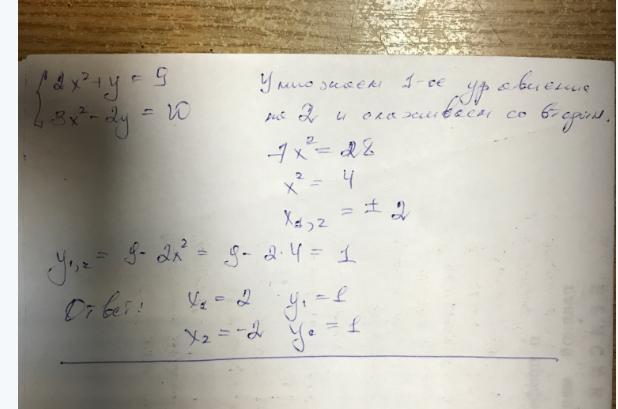 { 2x² + y = 9
3x² - 2y = 10
Умножаем 1-ое уравнение
на 2 и складываем со вторым.
7x² = 28
x² = 4
x₁,₂ = ± 2
y₁,₂ = 9 - 2x² = 9 - 2·4 = 1
Ответ: x₁ = 2 y₁ = 1
x₂ = -2 y₂ = 1